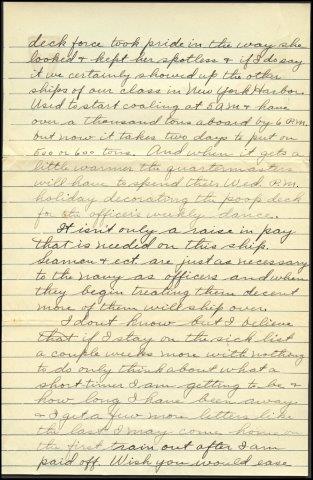 deck force took pride in the way she
looked & kept her spotless & if I do say
it we certainly showed up the other
ships of our class in New York Harbor.
Used to start coaling at 5 AM & have
over a thousand tons aboard by 6 P.M.
but now it takes two days to put on
500 or 600 tons. And when it gets a
little warmer the quartermasters
will have to spend their Wed. P.M.
holiday decorating the poop deck
for the officers weekly dance.
It isn't only a raise in pay
that is needed on this ship.
Seamen & ect. are just as necessary
to the navy as officers and when
they begin treating them decent
more of them will ship over.
I dont know but I believe
that if I stay on the sick list
a couple weeks more with nothing
to do only think about what a
short timer I am getting to be &
how long I have been away
& I get a few more letters like
the last I may come home on
the first train out after I am
paid off. Wish you would ease